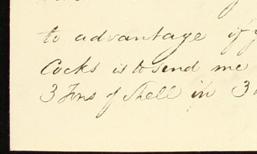 to advantage if
Cocks is to send me
3 Tons of Shell in 3